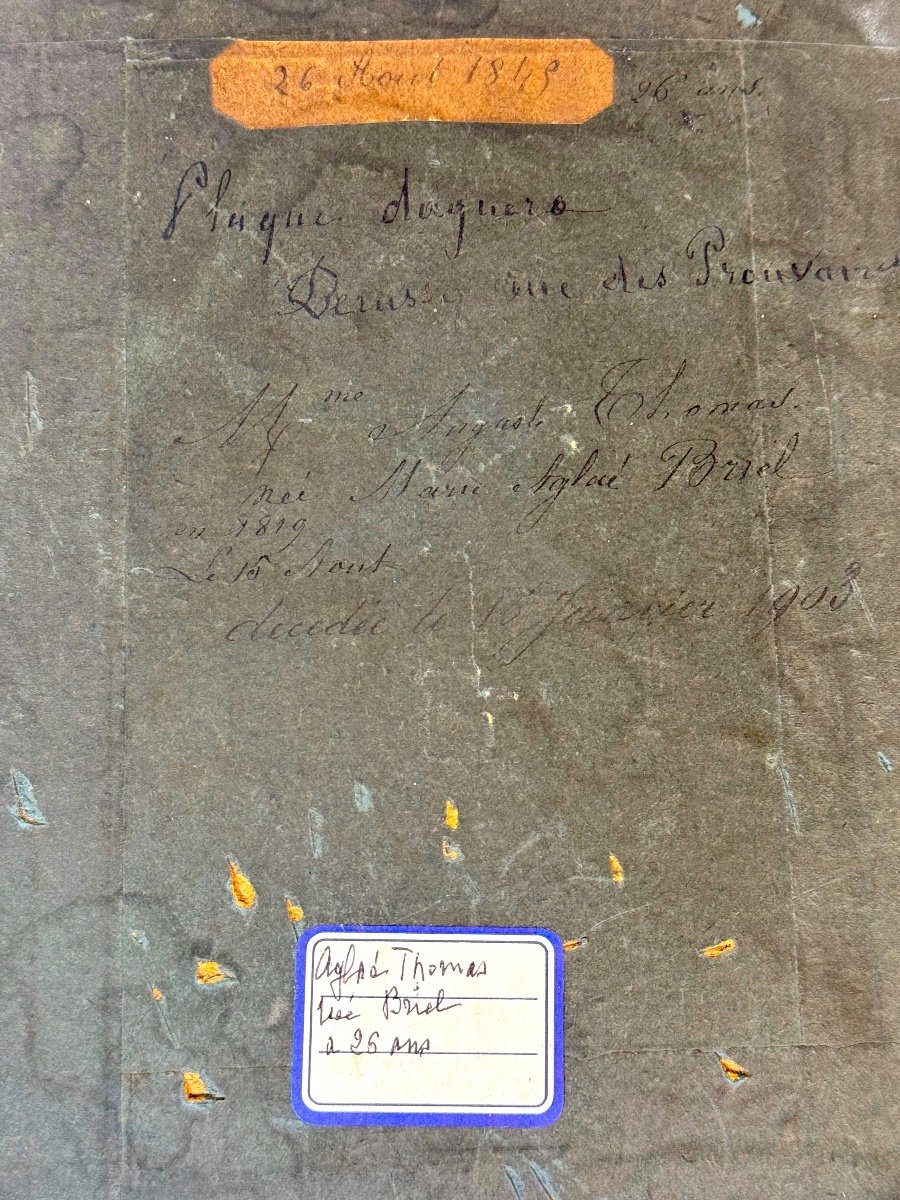 26 Aout 1845
26 ans.
Plaque daguero
Derussy rue des Prouvaires
Mme Auguste Thomas.
née Marie Aglaé Briel
en 1819
Le 15 Aout
decedée le Janvier 1903
Aglaé Thomas
née Briel
a 26 ans